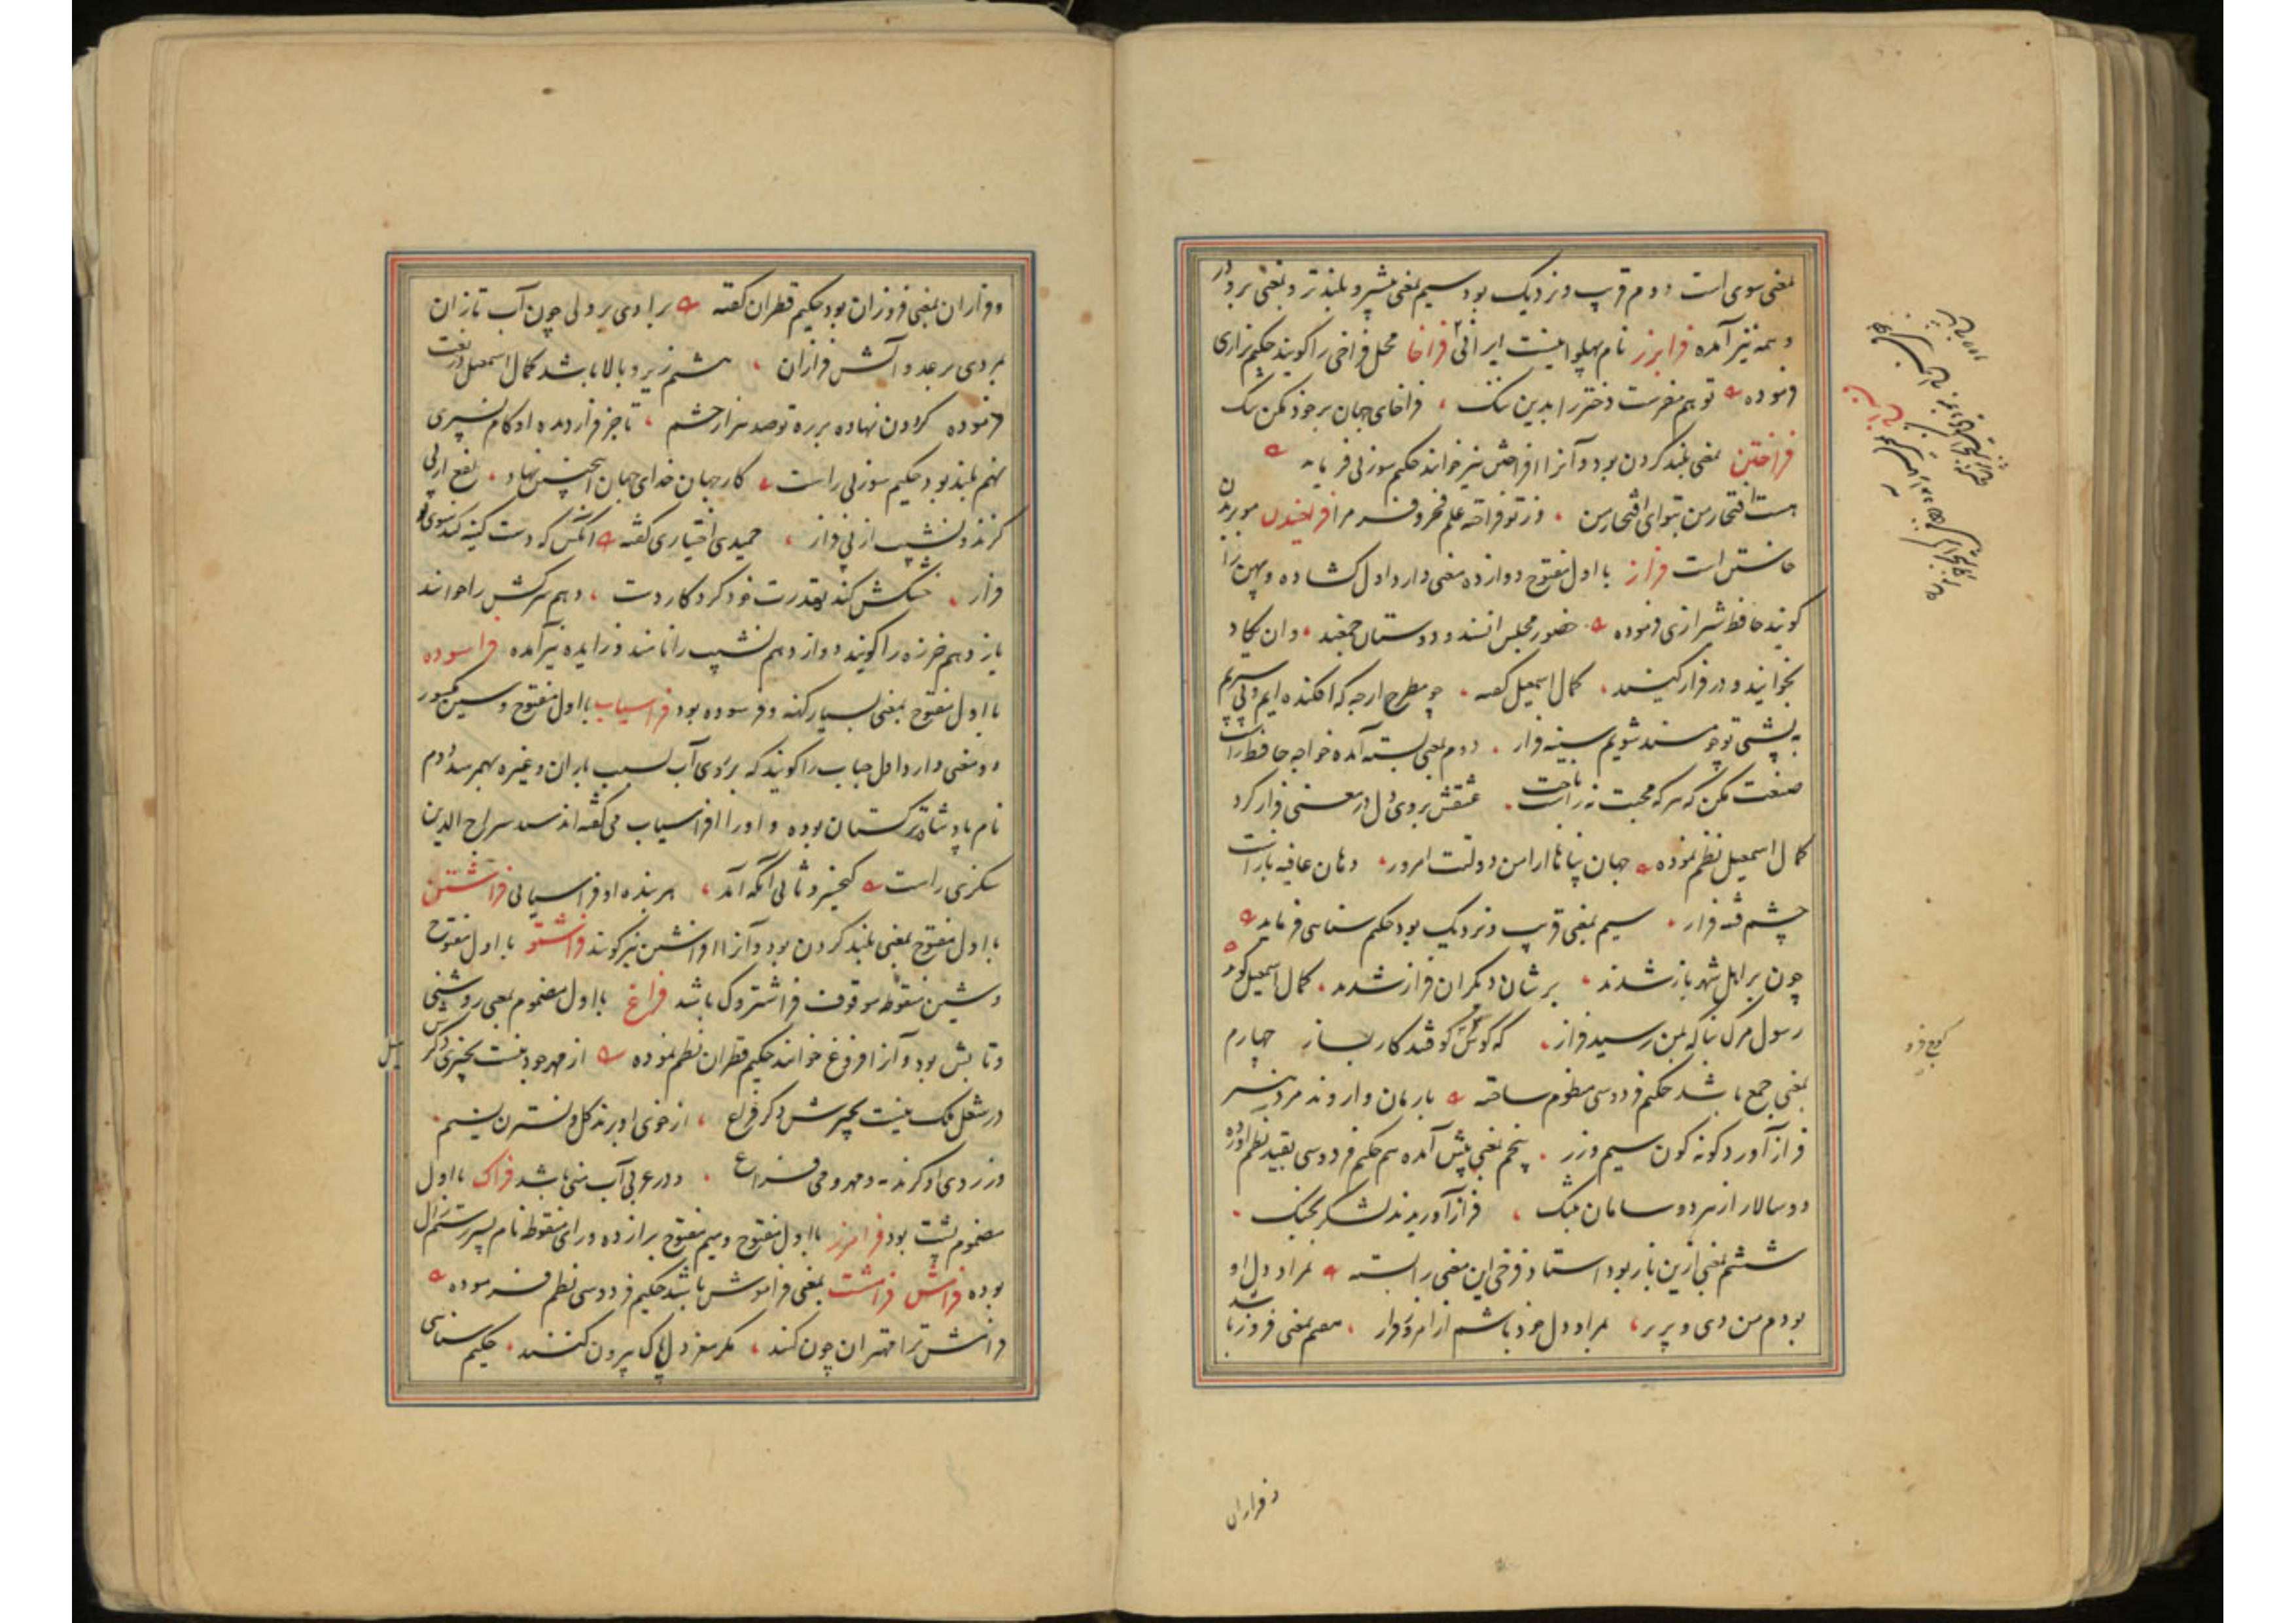 بمعنی سوی است دوم قریب و نزدیک بود سیم بمعنی پیشتر و بلندتر و بمعنی بر و در
و همه نیز آمده فرابرز نام پهلوانیست ایرانی فراخا محل فراخی را گویند حکیم نزاری
فرموده تو هم مفرست دختر را بدین ننگ فراخای جهان بر خود مکن تنگ
فراختن بمعنی بلند کردن بود و آنرا افراختن نیز خوانند حکیم سوزنی فرماید
هست افتخار من بتو ای افتخار من وز تو فراخته علم فخر و فر مرا فراخیدن موی بر تن
خاستن است فراز با اول مفتوح دوازده معنی دارد اول گشاده و پهن را
گویند حافظ شیرازی فرموده حضور مجلس انسست و دوستان جمعند و ان یکاد
بخوانید و در فراز کنید کمال اسمعیل گفته چو مطرح ارچه که افکنده ایم و پی سپریم
به پشتی تو چو مسند شویم سینه فراز دوم بمعنی بسته آمده خواجه حافظ راست
صنعت مکن که هر که محبت نه راست باخت عشقش بروی دل در معنی فراز کرد
کمال اسمعیل نظم نموده جهان پناها از امن دولتت امروز دهان عافیه باز است
چشم فتنه فراز سیم بمعنی قریب و نزدیک بود حکیم سنائی فرماید
چون بر اهل شهر باز شدند برشان دیگران فراز شدند کمال اسمعیل گوید
رسول مرگ بناگه بمن رسید فراز که کوس کوفتند کار بساز چهارم
بمعنی جمع باشد حکیم فردوسی منظوم ساخته
فراز آورد گونه گون سیم و زر پنجم بمعنی پیش آمده هم حکیم فردوسی بقید نظم آورده
دو سالار از هر دو سامان بتنگ فراز آوریدند لشکر بجنگ
ششم بمعنی ازین باز بود استاد فرخی این معنی را بسته بمراد دل او
بودم من دی و پریر بمراد دل خود باشم از امروز فراز هفتم بمعنی فروز باشد
و فرازان
و فرازان بمعنی فروزان بود حکیم قطران گفته برادی بر ولی چون آب تازان
بمردی بر عدو آتش فرازان هشتم زیر و بالا باشد کمال اسمعیل در نعت
فرموده گردون نهاده بر ره تو صد هزار چشم تا جز فراز دیده او گام نسپری
نهم بلند بود حکیم سوزنی راست کار جهان خدای جهان اینچنین نهاد نفع از پی
گزند و نشیب از پی فراز حمیدی اختیاری گفته آنکس که دست کینه کند سوی تو
فراز خشکش کند بقدرت خود کردگار دست دهم سرکش را خوانند
یازدهم خرزه را گویند دوازدهم نشیب را نامند و زاینده نیز آمده فراسوده
با اول مفتوح بمعنی بسیار کهنه و فرسوده بود فراسیاب با اول مفتوح و سین مکسور
دو معنی دارد اول حباب را گویند که بروی آب بسبب باران و غیره بهم رسد دوم
نام پادشاه ترکستان بوده و او را افراسیاب می گفته اند سید سراج الدین
سگزی راست کیخسرو ثانی آنکه آمد هر بنده او فراسیابی فراشتن
با اول مفتوح بمعنی بلند کردن بود و آنرا افراشتن نیز گویند فراشتو با اول مفتوح
و شین منقوطه موقوف فراشتروک باشد فراغ با اول مضموم بمعنی روشنی
و تابش بود و آنرا فروغ خوانند حکیم قطران نظم نموده
از خوی او برند گل و نسترن نسیم
ودر عربی آب منی باشد فراک با اول
مضموم پشت بود فرامرز با اول مفتوح و میم مفتوح برا زده و رای منقوط نام پسر رستم زال
بوده فرامش فرامشت بمعنی فراموش باشد حکیم فردوسی نظم فرموده
فرامش ترا مهتران چون کنند مگر مغز دل پاک بیرون کنند حکیم سنائی